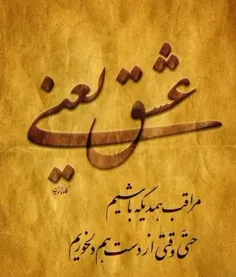 عشق یعنی
مراقب همدیگه باشیم
حتّی وقتی از دست هم دلخوریم